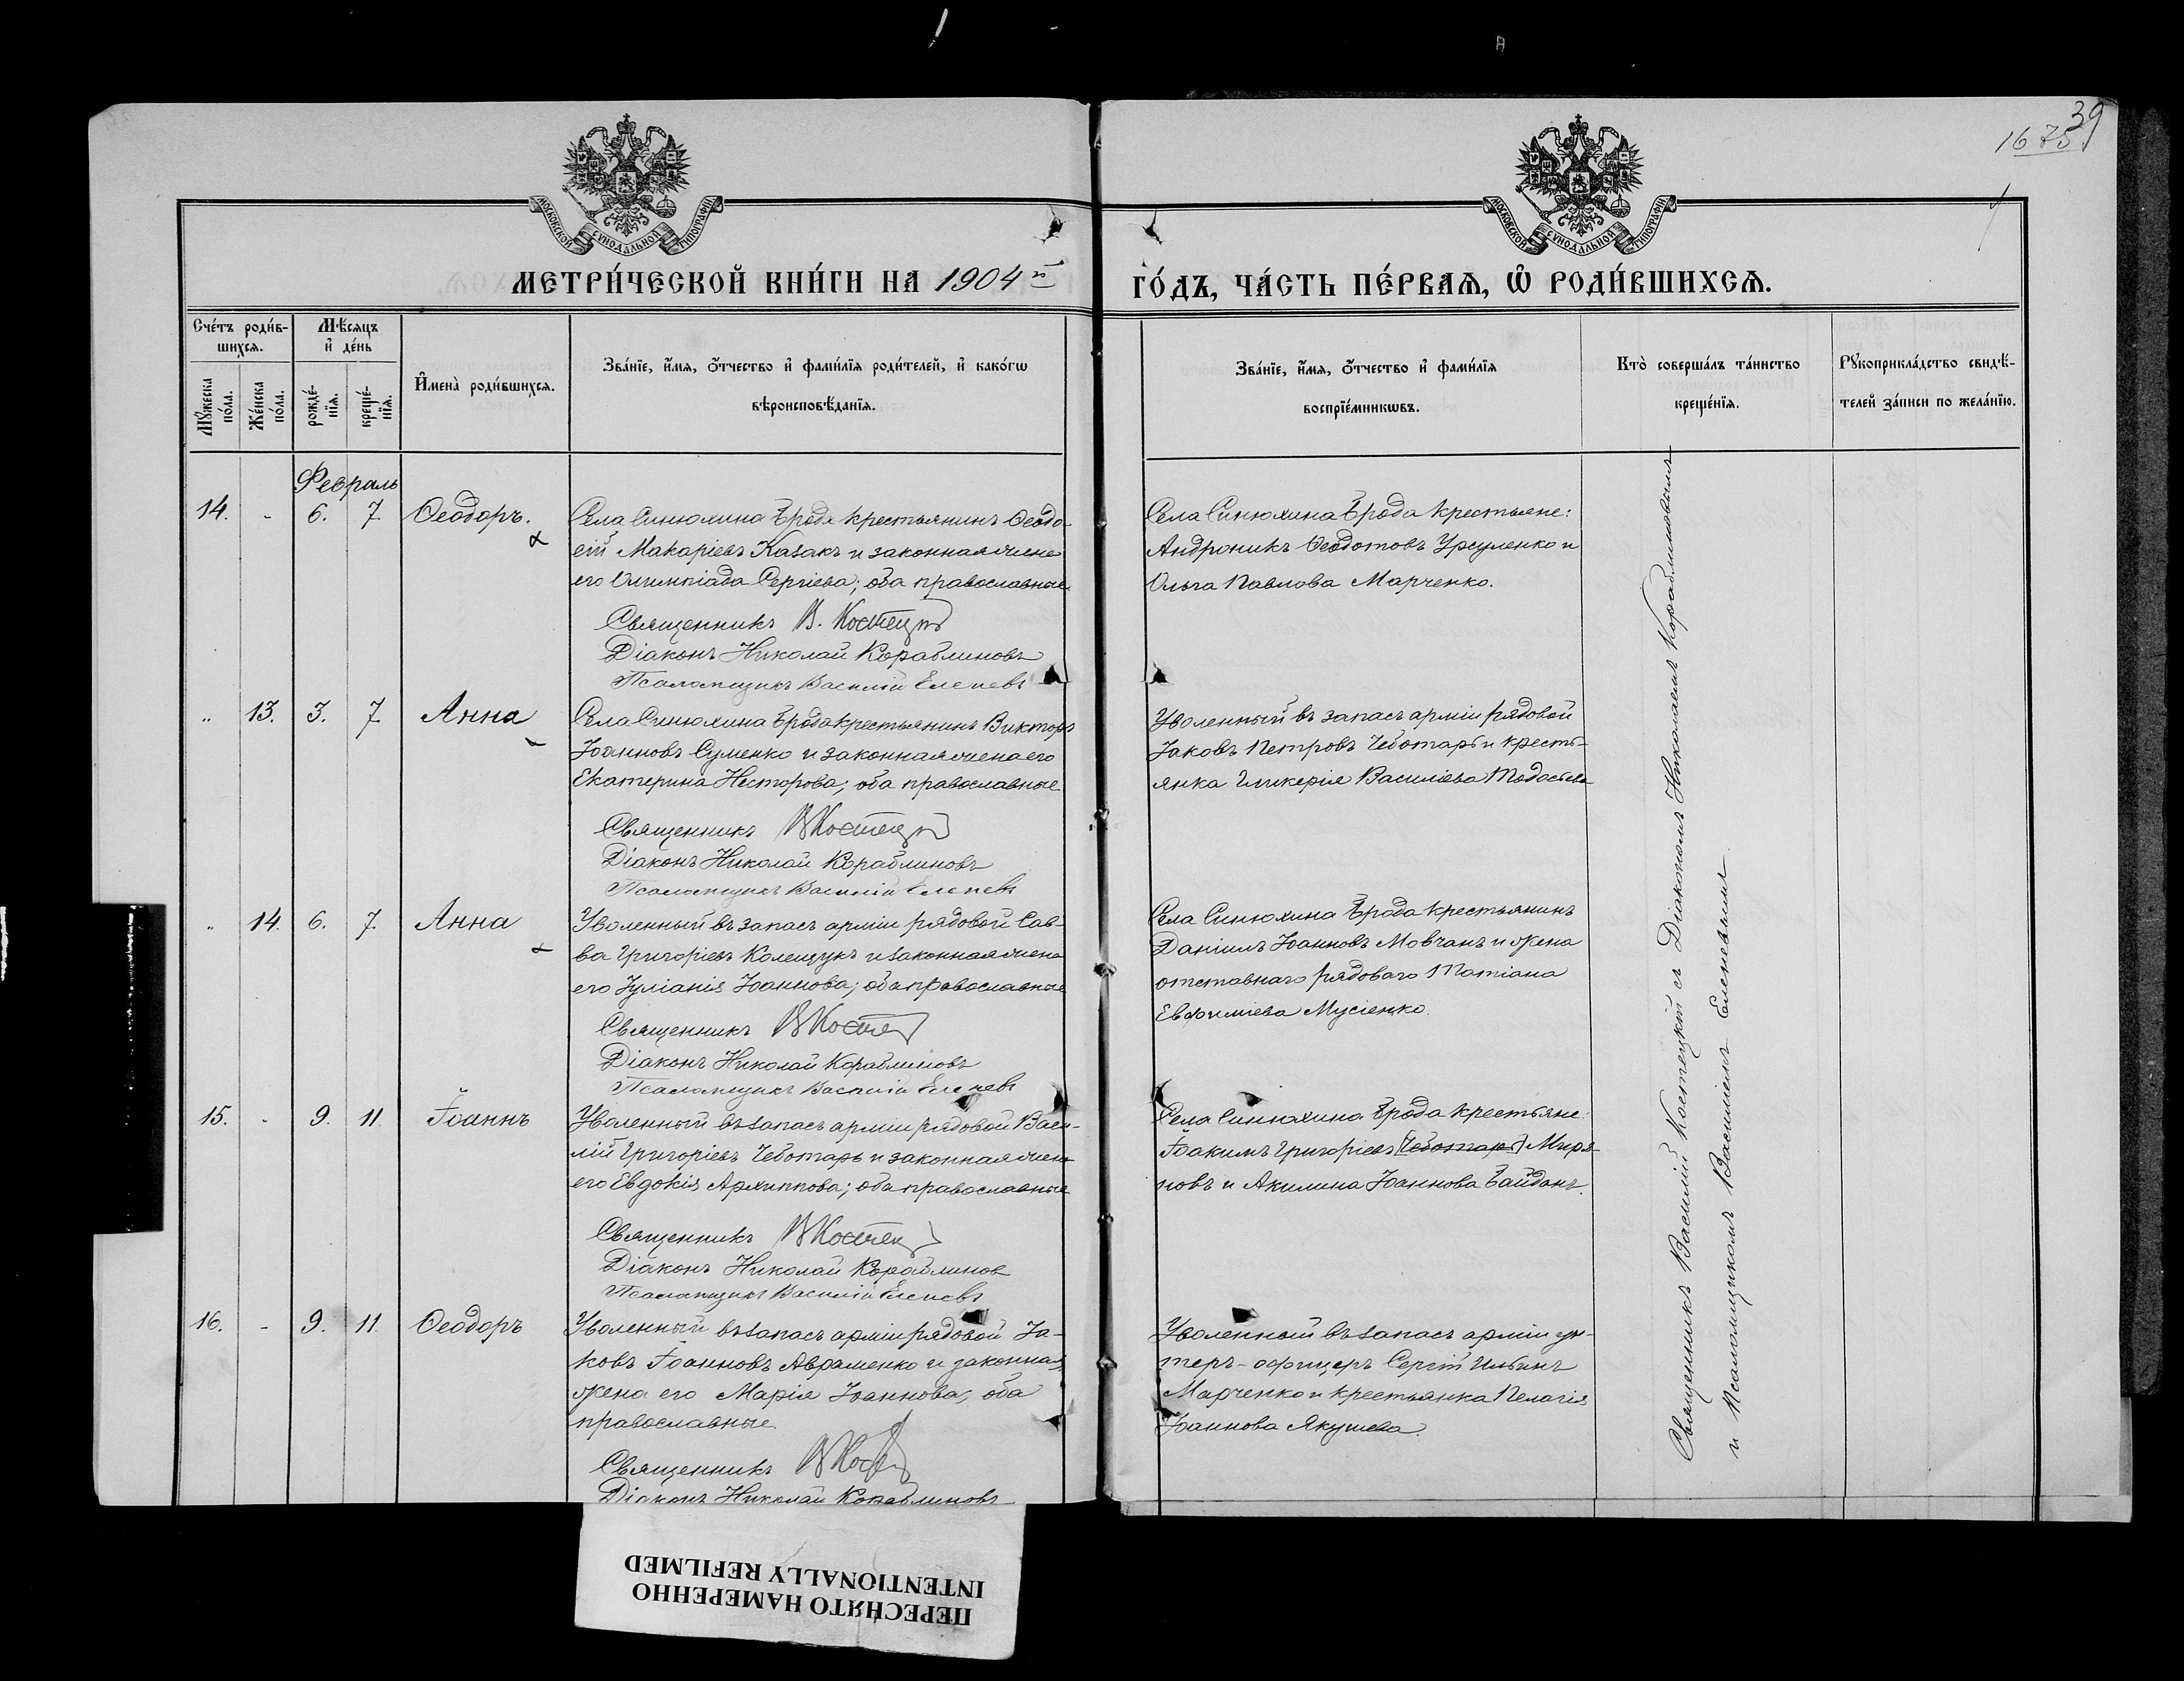 39
1675
МОСКОВСКОЙ СѴНОДАЛЬНОЙ ТИПОГРАФІИ
МОСКОВСКОЙ СѴНОДАЛЬНОЙ ТИПОГРАФІИ
МЕТРИ́ЧЕСКОЙ КНИ́ГИ НА 1904 й ГО́ДЪ, ЧА́СТЬ ПЕ́РВАѦ, Ѡ҆ РОДИ́ВШИХСѦ.
Сче́тъ роди́в-
шихсѧ.
Мꙋ́жеска
по́ла.
Же́нска
по́ла.
Мѣ́сѧцъ
и҆ де́нь
рожде́-
нїѧ.
креще́-
нїѧ.
И҆мена̀ роди́вшихсѧ.
Зва́нїе, и҆́мѧ, ѻ҆́тчество и҆ фами́лїѧ роди́телей, и҆ како́гѡ
вѣроисповѣ́данїѧ.
Зва́нїе, и҆́мѧ, ѻ҆́тчество и҆ фами́лїѧ
воспрїе́мникѡвъ.
Кто̀ соверша́лъ та́инство
креще́нїѧ.
Рꙋкоприкла́дство свидѣ́-
телей за́писи по жела́нїю.
Февраль
14. - 6. 7. Ѳеодоръ.
Села Синюхина Брода крестьянинъ Ѳеодо-
сій Макаріевъ Казакъ и законная жена
его Олимпіада Сергіева; оба православные
Священникъ В. Костецкій
Діаконъ Николай Кораблиновъ
Псаломщикъ Василій Еленевъ
Села Синюхина Брода крестьяне:
Андроникъ Ѳеодотовъ Урсуленко и
Ольга Павлова Марченко.
" 13. 3. 7. Анна
Села Синюхина Брода крестьянинъ Викторъ
Іоанновъ Суменко и законная жена его
Екатерина Несторова; оба православные
Священникъ В Костецкій
Діаконъ Николай Кораблиновъ
Псаломщикъ Василій Еленевъ
Уволенный въ запасъ арміи рядовой
Іаковъ Петровъ Чеботарь и кресть-
янка Гликерія Василіева
" 14. 6. 7. Анна
Уволенный въ запасъ арміи рядовой Сав-
ва Григоріевъ Колещукъ и законная жена
его Іуліанія Іоаннова; оба православные
Священникъ В Косте
Діаконъ Николай Кораблиновъ
Псаломщикъ Василій Еленевъ
Села Синюхина Брода крестьянинъ
Даніилъ Іоанновъ Мовчанъ и жена
отставнаго рядоваго Татіана
Евфиміева Мусіенко.
15. - 9. 11. Іоаннъ
Уволенный въ запасъ арміи рядовой Васи-
лій Григоріевъ Чеботарь и законная жена
его Евдокія Архиппова; оба православные
Священникъ В Костец
Діаконъ Николай Кораблинов
Псаломщикъ Василій Еленевъ
Села Синюхина Брода крестьяне:
Іоакимъ Григоріевъ (Чеботарь) Миро-
новъ и Акилина Іоаннова Байданъ.
16. - 9. 11. Ѳеодоръ
Уволенный въ запасъ арміи рядовой Іа-
ковъ Іоанновъ Авраменко и законная
жена его Марія Іоаннова, оба
православные.
Священникъ В Кос
Діаконъ Николай Кораблиновъ
Уволенный въ запасъ арміи ун-
теръ-офицеръ Сергій Ильинъ
Марченко и крестьянка Пелагія
Іоаннова Якушева.
Священникъ Василій Костецкій съ Діакономъ Николаемъ Кораблиновымъ
и Псаломщикомъ Василіемъ Еленевымъ.
ПЕРЕСНЯТО НАМЕРЕННО
INTENTIONALLY REFILMED